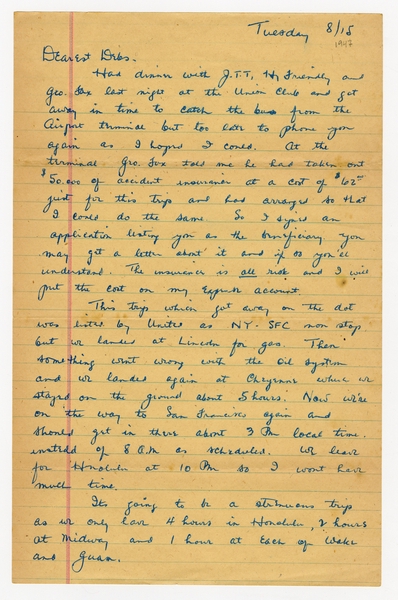 Tuesday 8/15
1947
Dearest Debs.
Had dinner with J.T.T, Hy Friendly and
Geo. Fox last night at the Union Club and got
away in time to catch the bus from the
Airport terminal but too late to phone you
again as I hoped I could. At the
terminal Geo. Fox told me he had taken out
$50.000 of accident insurance at a cost of $62
just for this trip and had arranged so that
I could do the same. So I signed an
application listing you as the beneficiary. You
may get a letter about it and if so you'll
understand. The insurance is all risk and I will
put the cost on my Expense account.
This trip which got away on the dot
was listed by United as NY-SFC non stop
but we landed at Lincoln for gas. Then
something went wrong with the oil system
and we landed again at Cheyenne where we
stayed on the ground about 5 hours. Now we're
on the way to San Francisco again and
should get in there about 3 PM local time.
instead of 8 A.M as scheduled. We leave
for Honolulu at 10 PM so I wont have
much time.
Its going to be a strenuous trip
as we only have 4 hours in Honolulu, 2 hours
at Midway and 1 hour at Each of Wake
and Guam.